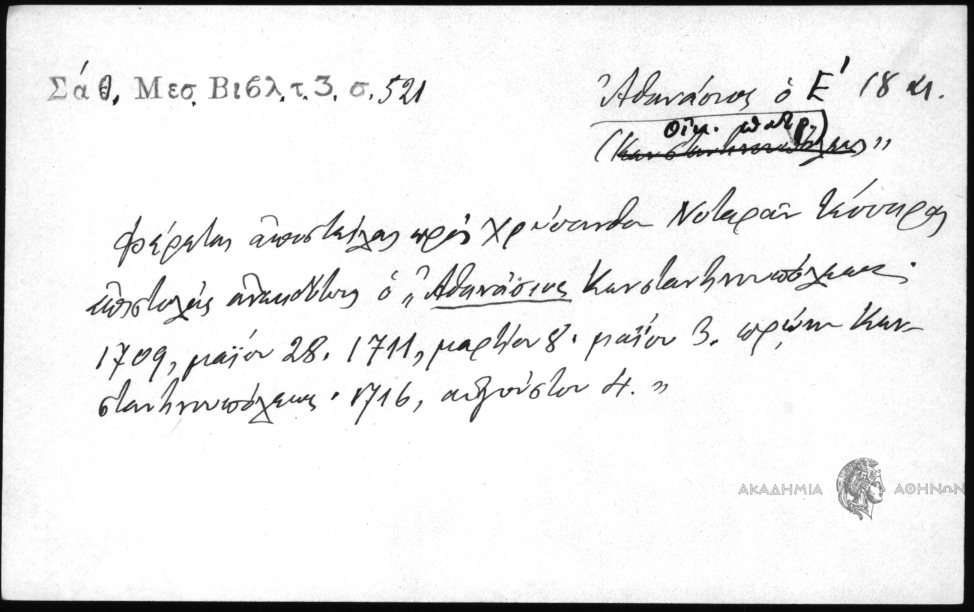 Σάθ. Μεσ. Βιβλ. τ. 3. σ. 521
Ἀθανάσιος ὁ Ε΄ 18 αι.
οἰκ. πατρ.)
(Κωνσταντινουπόλεως „
Φέρεται ἀποστείλας πρὸς Χρύσανθον Νοταρᾶν τέσσαρας
ἐπιστολὰς ἀνεκδότους ὁ „Ἀθανάσιος Κωνσταντινουπόλεως.
1709, μαΐου 28. 1711, μαρτίου 8. μαΐου 3. πρώην Κων-
σταντινουπόλεως. 1716, αὐγούστου 4. „
ΑΚΑΔΗΜΙΑ ΑΘΗΝΩΝ